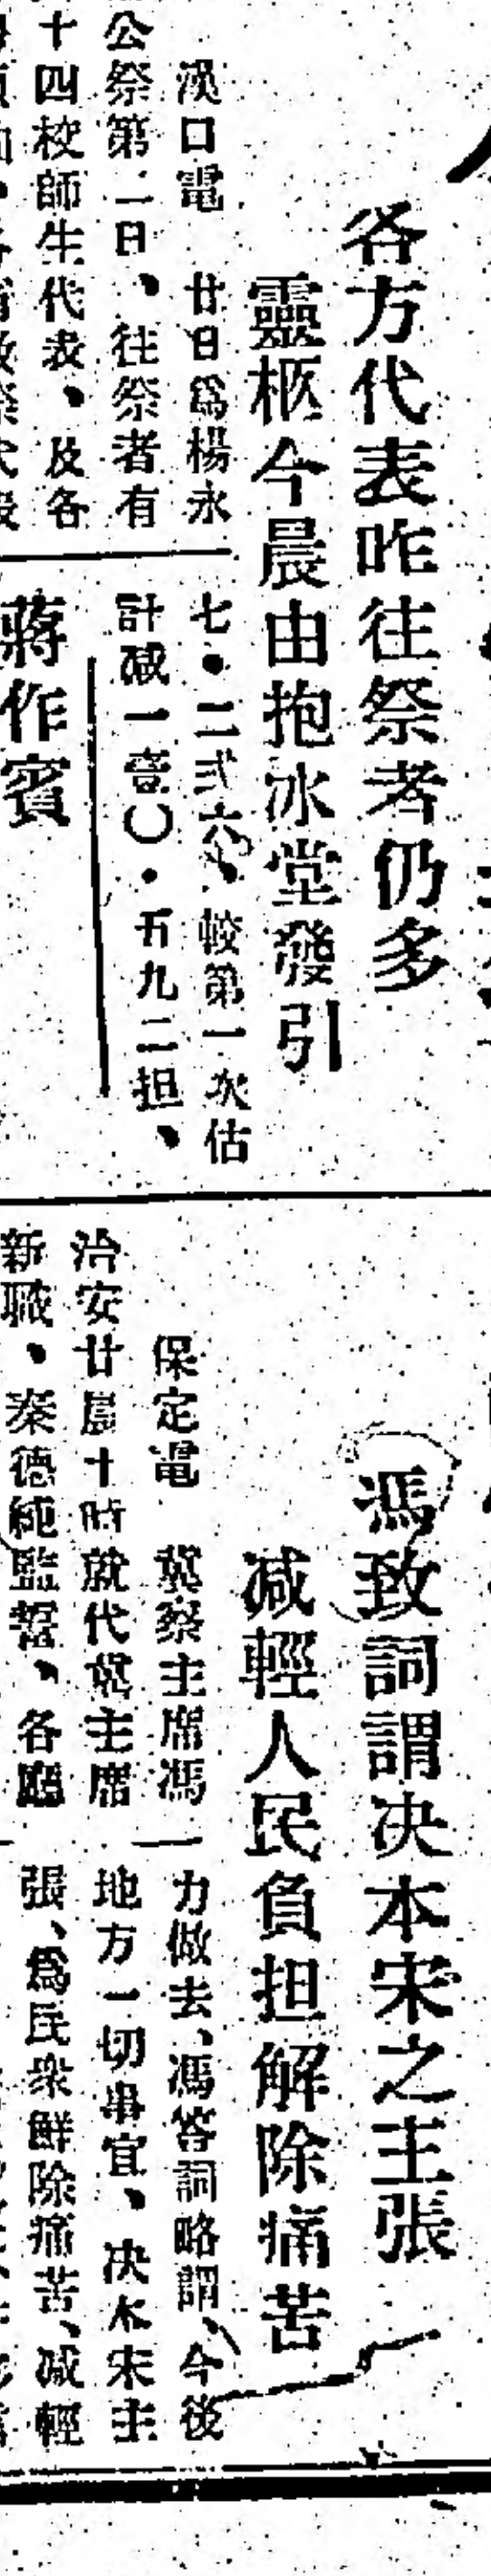 各方代表咋往祭者仍多
靈柩今晨由抱冰堂發引
漢口電　廿日爲楊永
公祭第二日、往祭者有
十四校師生代表、及各
七・二弍六、較第一次估
計减一壹〇・五九二担、
蔣作賓
馮致詞謂决本宋之主張
减輕人民負担解除痛苦
保定電　冀察主席馮
治安廿晨十時就代冀主席
新職、秦德純監誓、各廳
力做去、馮答詞略謂、今後
地方一切事宜、决本宋主
張、爲民衆解除痛苦、减輕